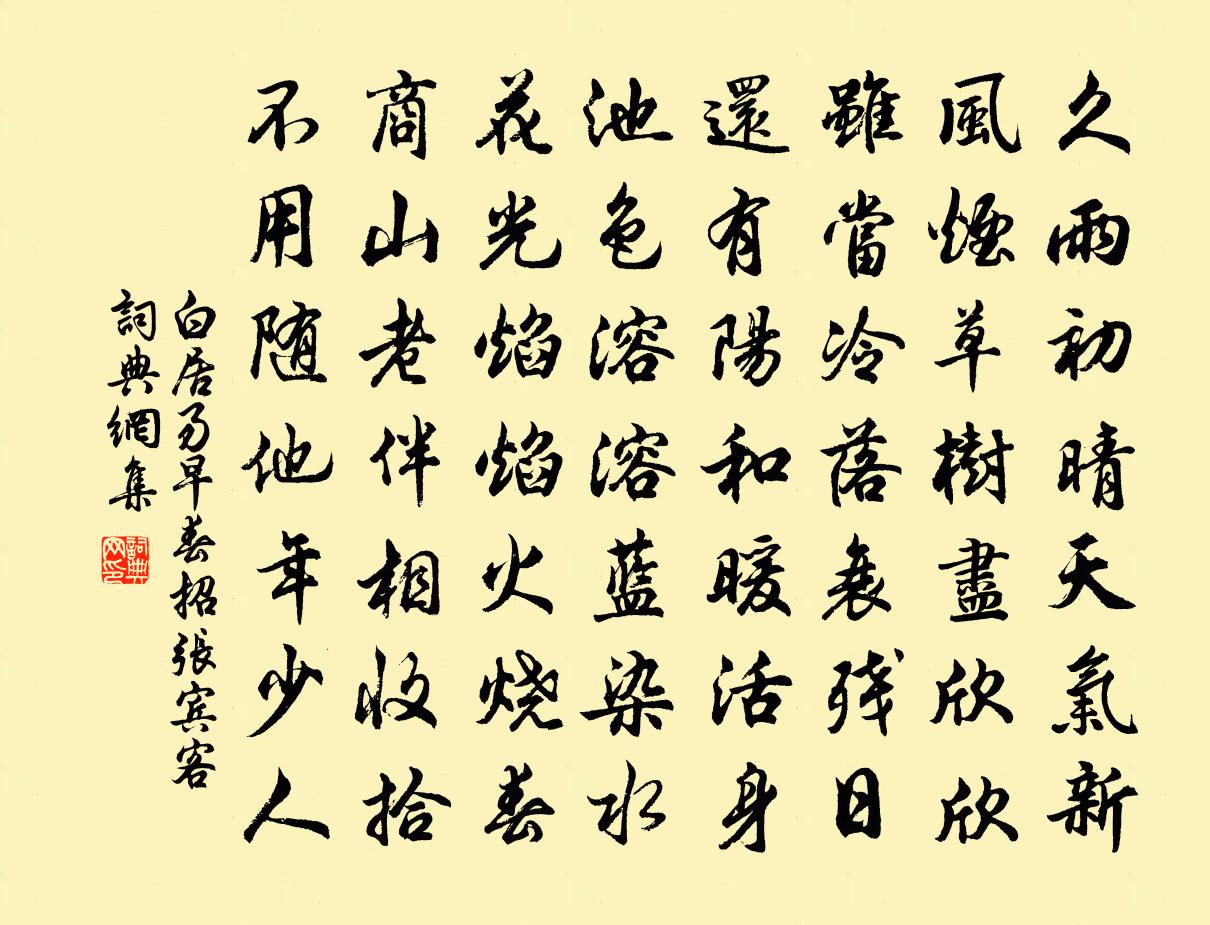 久雨初晴天氣新
風煙草樹盡欣欣
雖當冷落衰残日
還有陽和暖活身
池色溶溶藍染水
花光焰焰火烧春
商山老伴相收拾
不用随他年少人
白居易早春招張宾客
詞典網集
詞典网印